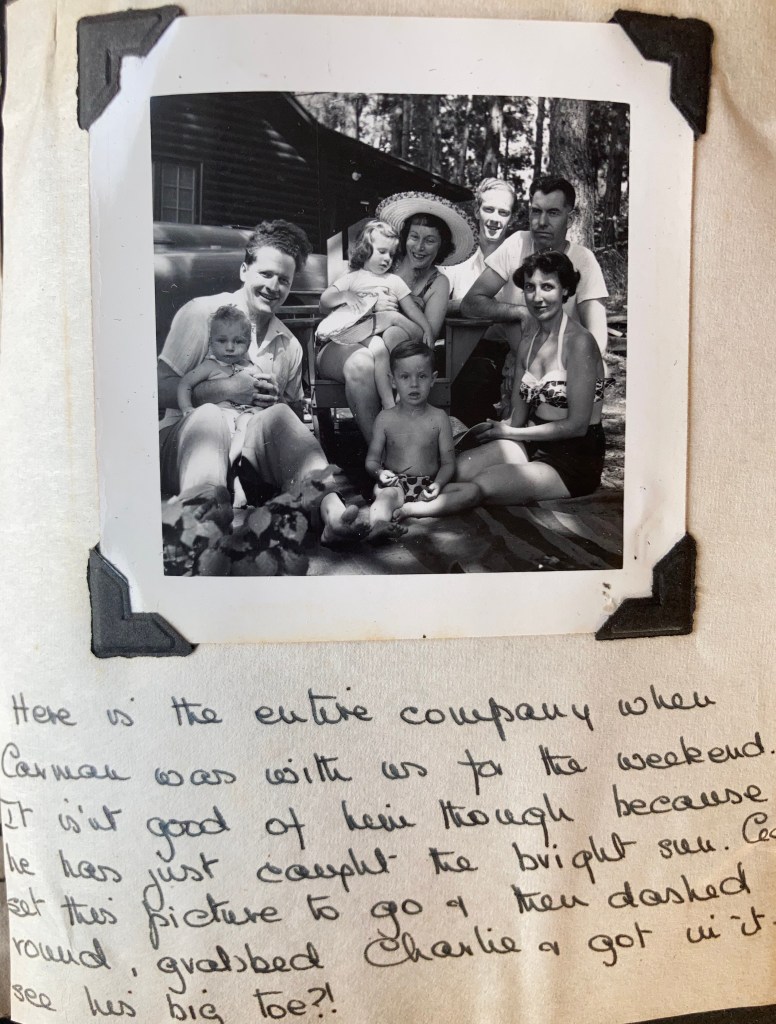 Here is the entire company when
Carman was with us for the weekend.
It is'nt good of him though because
he has just caught the bright sun.
set this picture to go & then dashed
round, grabbed Charlie & got in it -
see his big toe?!